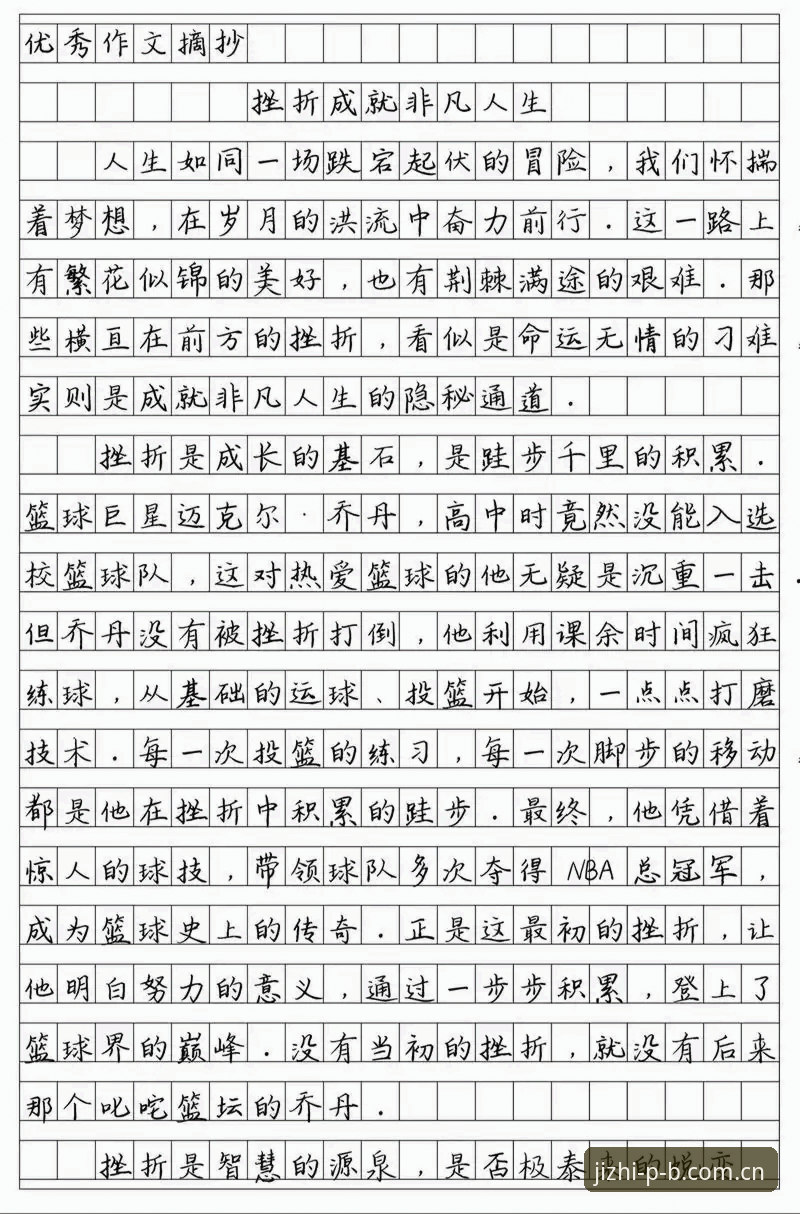 优秀作文摘抄
挫折成就非凡人生
人生如同一场跌宕起伏的冒险,我们怀揣
着梦想,在岁月的洪流中奋力前行.这一路上,
有繁花似锦的美好,也有荆棘满途的艰难.那
些横亘在前方的挫折,看似是命运无情的刁难,
实则是成就非凡人生的隐秘通道.
挫折是成长的基石,是跬步千里的积累.
篮球巨星迈克尔·乔丹,高中时竟然没能入选
校篮球队,这对热爱篮球的他无疑是沉重一击.
但乔丹没有被挫折打倒,他利用课余时间疯狂
练球,从基础的运球、投篮开始,一点点打磨
技术.每一次投篮的练习,每一次脚步的移动,
都是他在挫折中积累的跬步.最终,他凭借着
惊人的球技,带领球队多次夺得NBA总冠军,
成为篮球史上的传奇.正是这最初的挫折,让
他明白努力的意义,通过一步步积累,登上了
篮球界的巅峰.没有当初的挫折,就没有后来
那个叱咤篮坛的乔丹.
挫折是智慧的源泉,是否极泰来的蜕变
jizhi-p-b.com.cn